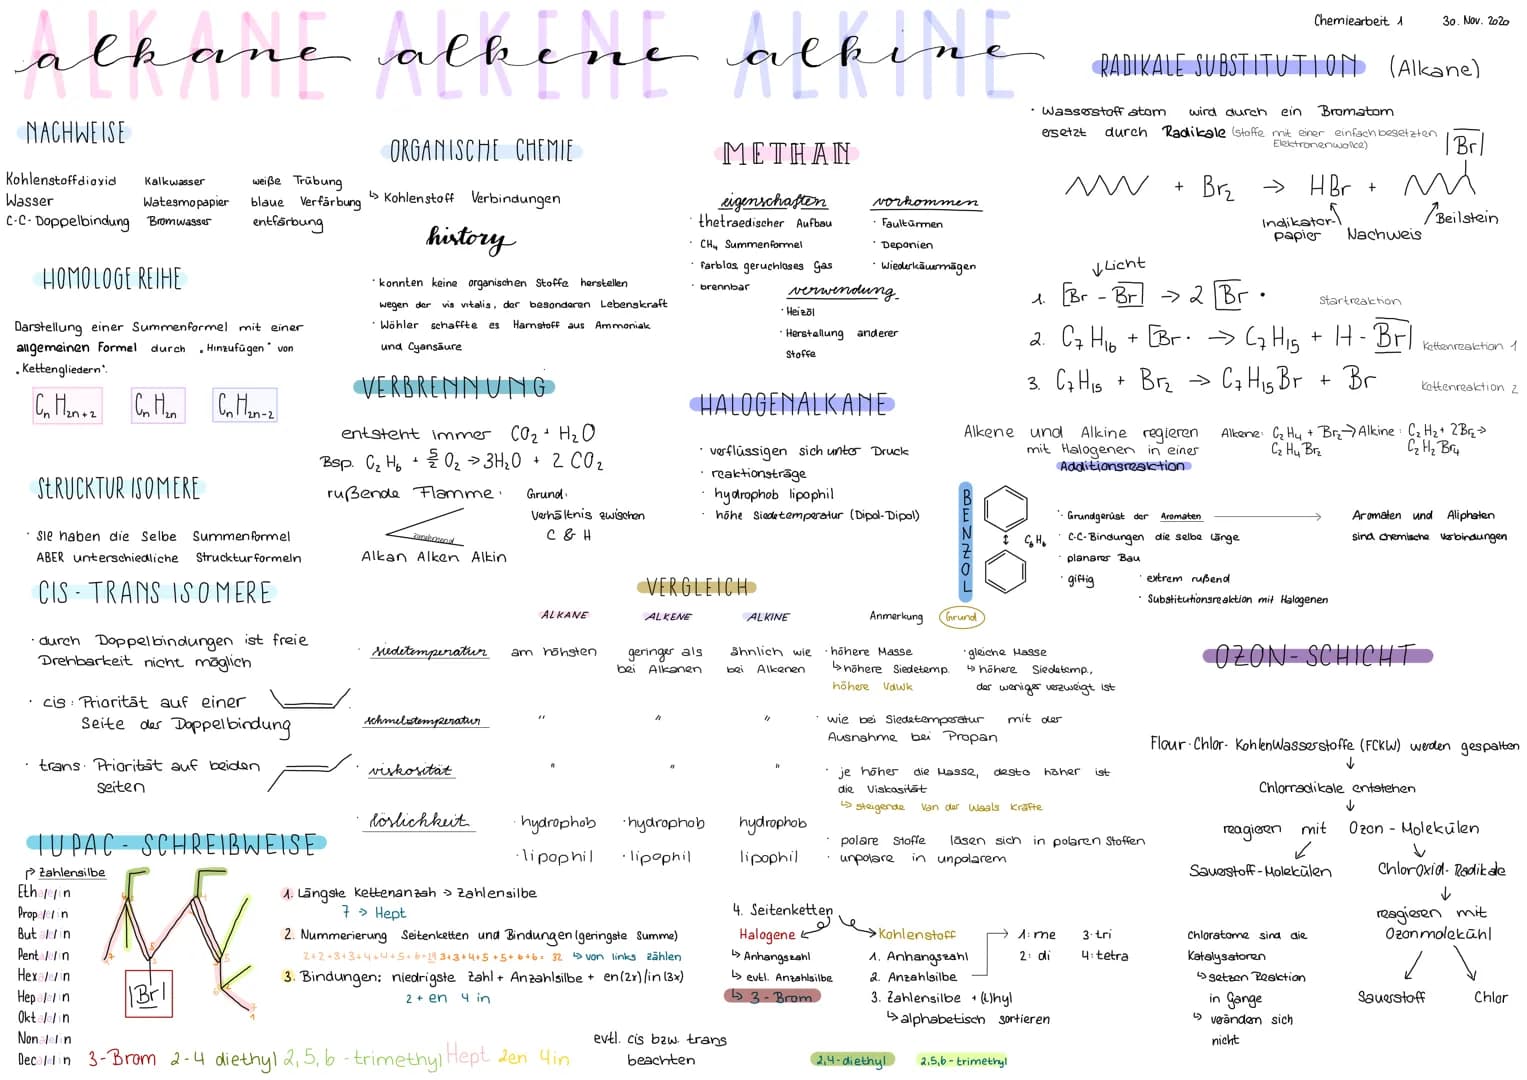 ALKANE ALKENE ALKINE
alkane alkene alkine
Chemiearbeit 1 30. Nov. 2020
NACHWEISE
Kohlenstoffdioxid Kalkwasser weiße Trübung
Wasser Watesmopapier blaue Verfärbung
C-C-Doppelbindung Bromwasser entfärbung
HOMOLOGE REIHE
Darstellung einer Summenformel mit einer
allgemeinen Formel durch "Hinzufügen" von
"Kettengliedern".
CnH2n+2 CnH2n CnH2n-2
STRUCKTUR ISOMERE
· sie haben die Selbe Summenformel
ABER unterschiedliche Struckturformeln
CIS-TRANS ISOMERE
· durch Doppelbindungen ist freie
Drehbarkeit nicht möglich
· cis: Priorität auf einer
Seite der Doppelbindung
· trans: Priorität auf beiden
seiten
ORGANISCHE CHEMIE
↳ Kohlenstoff Verbindungen
history
· konnten keine organischen Stoffe herstellen
wegen der vis vitalis, der besonderen Lebenskraft
· Wöhler schaffte es Harnstoff aus Ammoniak
und Cyansäure
VERBRENNUNG
entsteht immer CO2 + H2O
Bsp. C2H6 + 5/2 O2 → 3H2O + 2 CO2
rußende Flamme:
zunehmend
Alkan Alken Alkin
Grund:
Verhältnis zwischen
C & H
METHAN
eigenschaften
· thetraedischer Aufbau
· CH4 Summenformel
· farblos, geruchloses Gas
· brennbar
vorkommen
· Faultürmen
· Deponien
· Wiederkäuermägen
verwendung
· Heizöl
· Herstellung anderer
Stoffe
HALOGENALKANE
· verflüssigen sich unter Druck
· reaktionsträge
· hydrophob lipophil
· höhe Siedetemperatur (Dipol-Dipol)
RADIKALE SUBSTITUTION (Alkane)
· Wasserstoffatom wird durch ein Bromatom
ersetzt durch Radikale (Stoffe mit einer einfach besetzten
Elektronenwolke)
|Br|
+ Br2 → HBr +
Indikator-
papier Nachweis
Beilstein
↓ Licht
1. |Br - Br| → 2 |Br · Startreaktion
2. C7H16 + |Br · → C7H15 + H - Br| Kettenreaktion 1
3. C7H15 + Br2 → C7H15Br + Br Kettenreaktion 2
Alkene und Alkine regieren
mit Halogenen in einer
Additionsreaktion
Alkene: C2H4 + Br2 →
C2H4Br2
Alkine: C2H2 + 2Br2 →
C2H2Br4
BENZOL
C6H6
· Grundgerüst der Aromaten → Aromaten und Aliphaten
sind chemische Verbindungen
· C-C-Bindungen die selbe Länge
· planarer Bau
· giftig
· extrem rußend
· Substitutionsreaktion mit Halogenen
VERGLEICH
ALKANE ALKENE ALKINE Anmerkung Grund
· siedetemperatur am höhsten geringer als
bei Alkanen
ähnlich wie
bei Alkenen
· höhere Masse
↳ höhere Siedetemp.
höhere VdWK
· gleiche Masse
↳ höhere Siedetemp.,
der weniger verzweigt ist
· schmelztemperatur " " "
· wie bei Siedetemperatur mit der
Ausnahme bei Propan
· viskosität " " "
· je höher die Masse, desto höher ist
die Viskosität
↳ steigende Van der Waals Kräfte
· löslichkeit · hydrophob · hydrophob hydrophob
· lipophil · lipophil lipophil
· polare Stoffe lösen sich in polaren Stoffen
· unpolare in unpolarem
OZON-SCHICHT
Flour-Chlor-KohlenWasserstoffe (FCKW) werden gespalten
↓
Chlorradikale entstehen
↓
reagieren mit Ozon-Molekülen
Sauerstoff-Molekülen
Chloroxid-Radikale
↓
reagieren mit
Ozonmolekühl
Sauerstoff Chlor
Chloratome sind die
Katalysatoren
↳ setzen Reaktion
in Gange
↳ verändern sich
nicht
IUPAC-SCHREIBWEISE
Zahlensilbe
Eth a/e/in
Prop a/e/in
But a/e/in
Pent a/e/in
Hex a/e/in
Hep a/e/in
Okt a/e/in
Non a/e/in
Dec a/e/in
|Br|
1. Längste Kettenanzah → Zahlensilbe
7 → Hept
2. Nummerierung Seitenketten und Bindungen (geringste Summe)
3+3+4+5+5+6+6= 32 ↳ von links zählen
3. Bindungen: niedrigste Zahl + Anzahlsilbe + en(2x)/in(3x)
2 + en 4 in
4. Seitenketten
Halogene
↳ Anhangszahl
↳ evtl. Anzahlsilbe
↳ 3-Brom
Kohlenstoff
1. Anhangszahl
2. Anzahlsilbe
3. Zahlensilbe + (L)hyl
↳ alphabetisch sortieren
1: me 3: tri
2: di 4: tetra
evtl. cis bzw. trans
beachten
2,4-diethyl 2,5,6-trimethyl
3-Brom 2-4 diethyl 2,5,6-trimethyl Hept 2en 4in